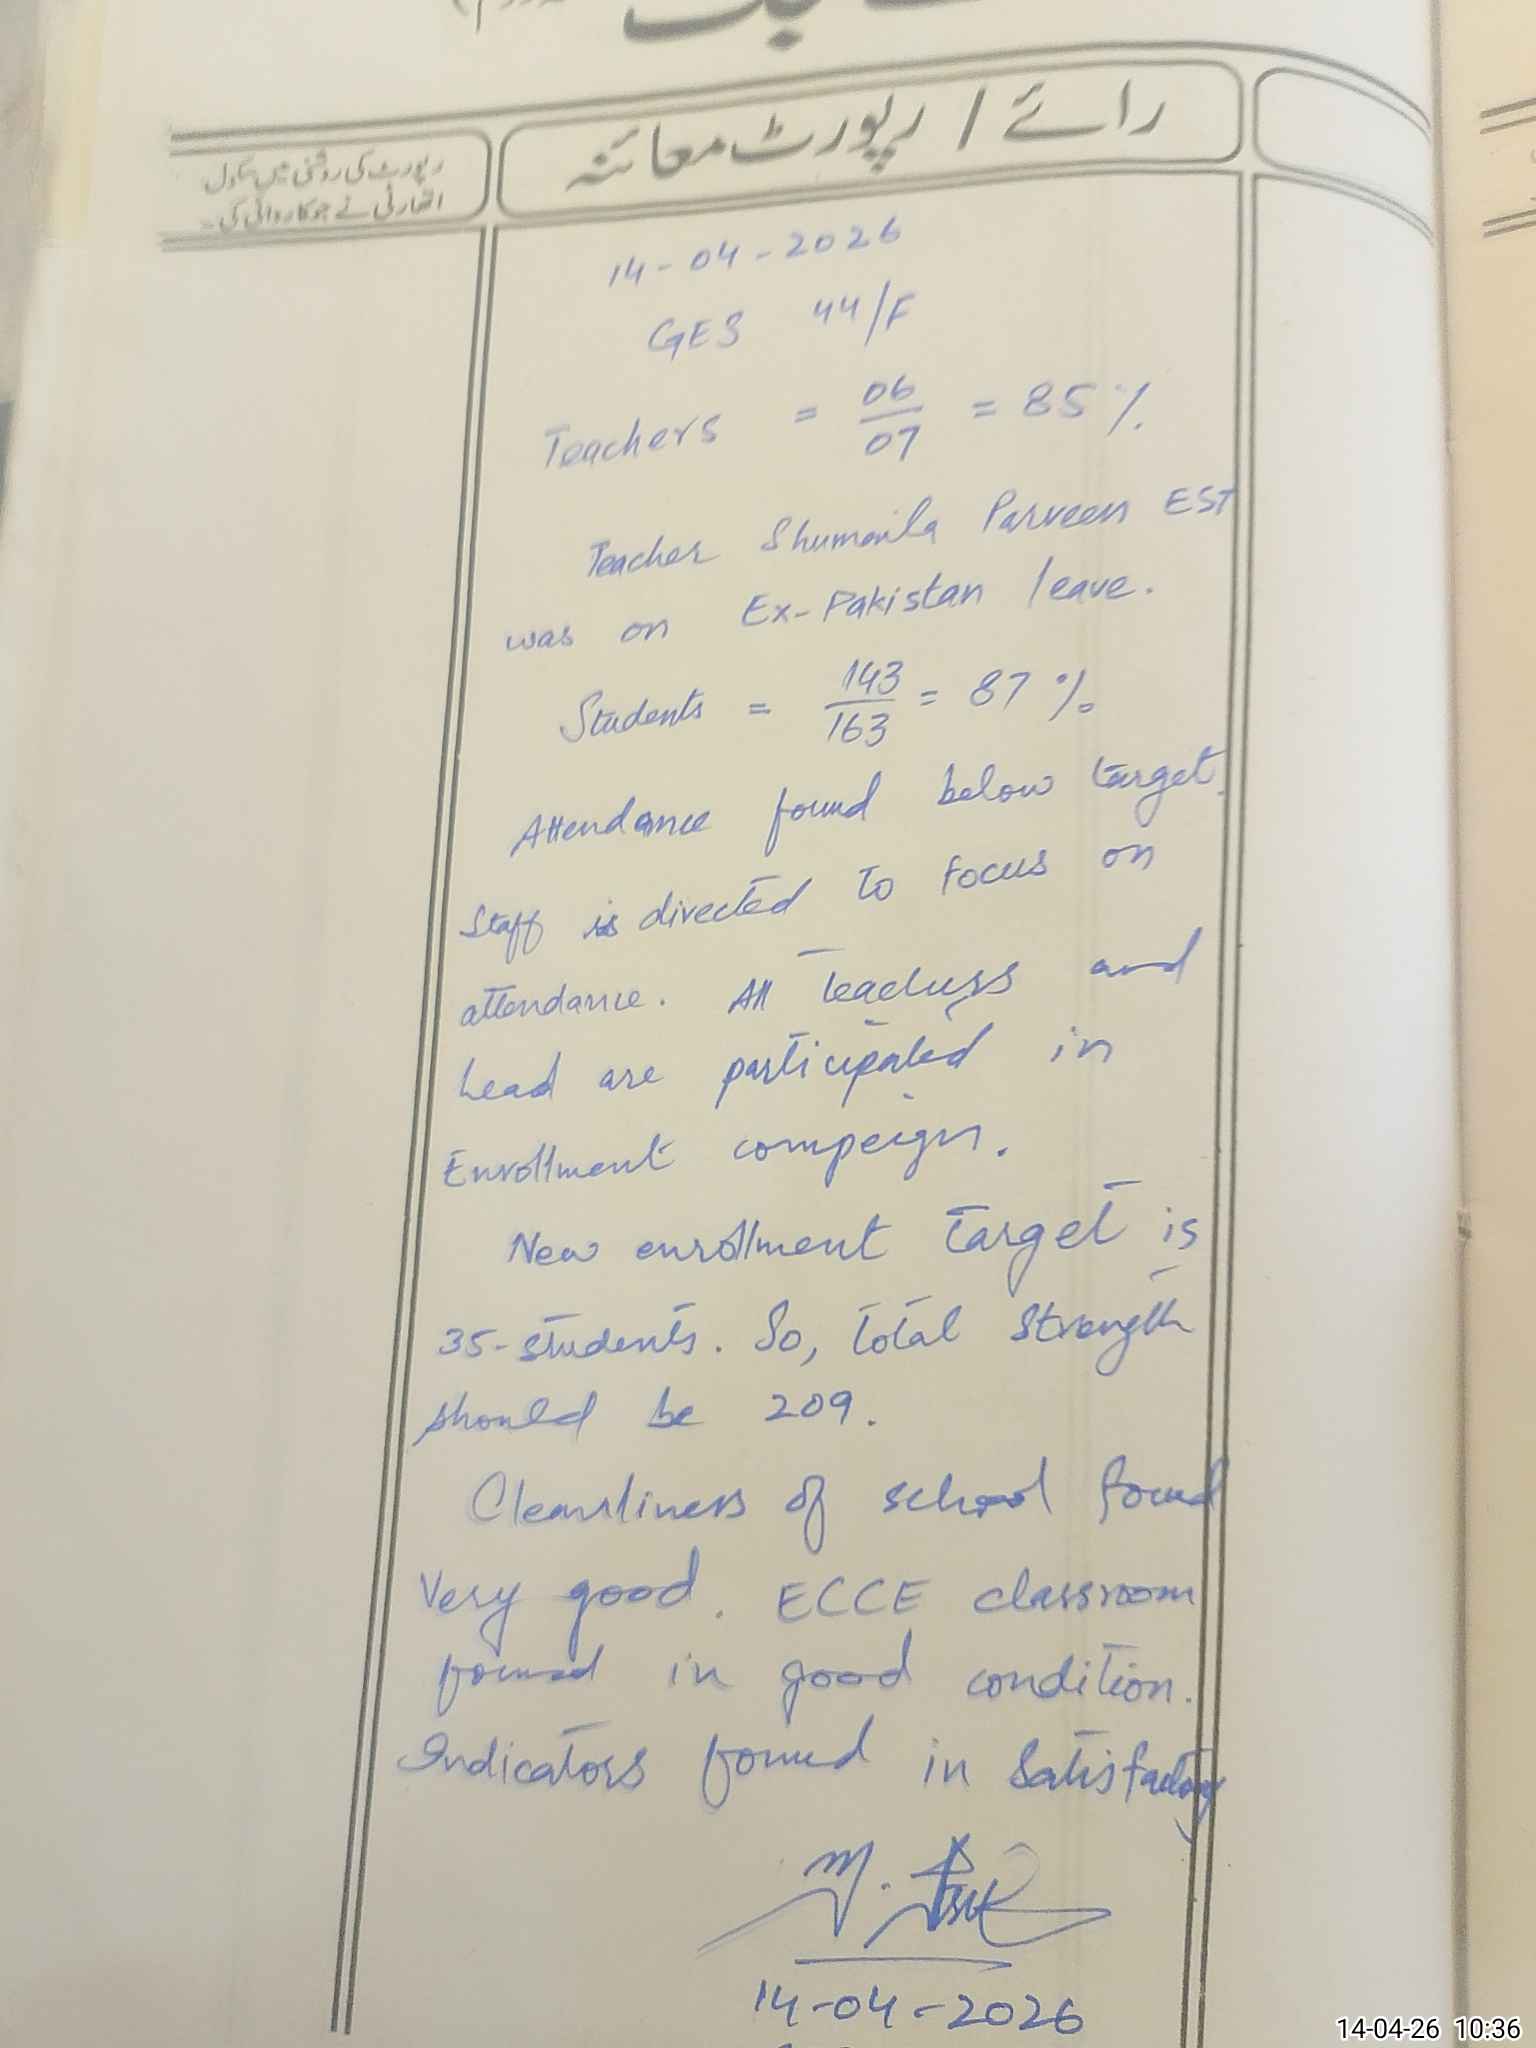 رائے / رپورٹ معائنہ
رپورٹ کی روشنی میں سکول
اتھارٹی نے جو کاروائی کی۔
14-04-2026
GES 44/F
Teachers = 06/07 = 85%
Teacher Shumaila Parveen EST
was on Ex-Pakistan leave.
Students = 143/163 = 87%
Attendance found below target.
Staff is directed to focus on
attendance. All teachers and
head are participated in
Enrollment compeign.
New enrollment target is
35-students. So, total strength
should be 209.
Cleanliness of school found
Very good. ECCE classroom
found in good condition.
Indicators found in Satisfactory
14-04-2026
14-04-26 10:36